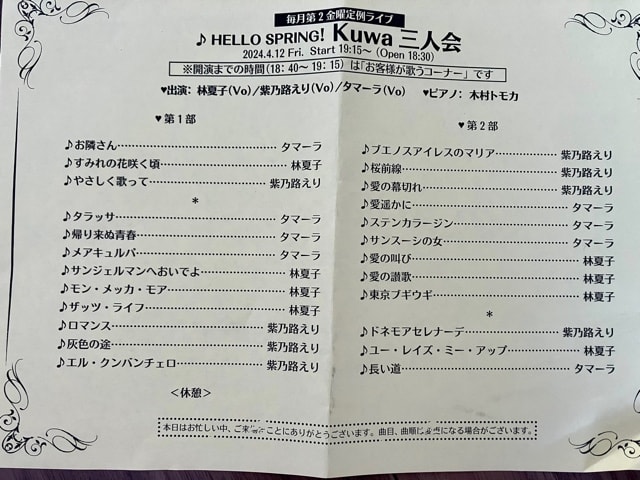 毎月第2金曜定例ライブ
♪HELLO SPRING! Kuwa 三人会
2024.4.12 Fri. Start 19:15～(Open 18:30)
※開演までの時間(18:40～19:15)は「お客様が歌うコーナー」です
♥出演: 林夏子(Vo)/紫乃路えり(Vo)/タマーラ(Vo) ♥ピアノ: 木村トモカ
♥第1部
♪お隣さん……………………………タマーラ
♪すみれの花咲く頃…………………林夏子
♪やさしく歌って……………………紫乃路えり
*
♪タラッサ……………………………タマーラ
♪帰り来ぬ青春………………………タマーラ
♪メアキュルパ………………………タマーラ
♪サンジェルマンへおいでよ………林夏子
♪モン・メッカ・モア………………林夏子
♪ザッツ・ライフ……………………林夏子
♪ロマンス……………………………紫乃路えり
♪灰色の途……………………………紫乃路えり
♪エル・クンバンチェロ……………紫乃路えり
<休憩>
♥第2部
♪ブエノスアイレスのマリア………紫乃路えり
♪桜前線………………………………紫乃路えり
♪愛の幕切れ…………………………紫乃路えり
♪愛遥かに……………………………タマーラ
♪ステンカラージン…………………タマーラ
♪サンスーシの女……………………タマーラ
♪愛の叫び……………………………林夏子
♪愛の讃歌……………………………林夏子
♪東京ブギウギ………………………林夏子
*
♪ドネモアセレナーデ………………紫乃路えり
♪ユー・レイズ・ミー・アップ……林夏子
♪長い道………………………………タマーラ
本日はお忙しい中、ご来 ことにありがとうございます。曲目、曲順 になる場合がございます。